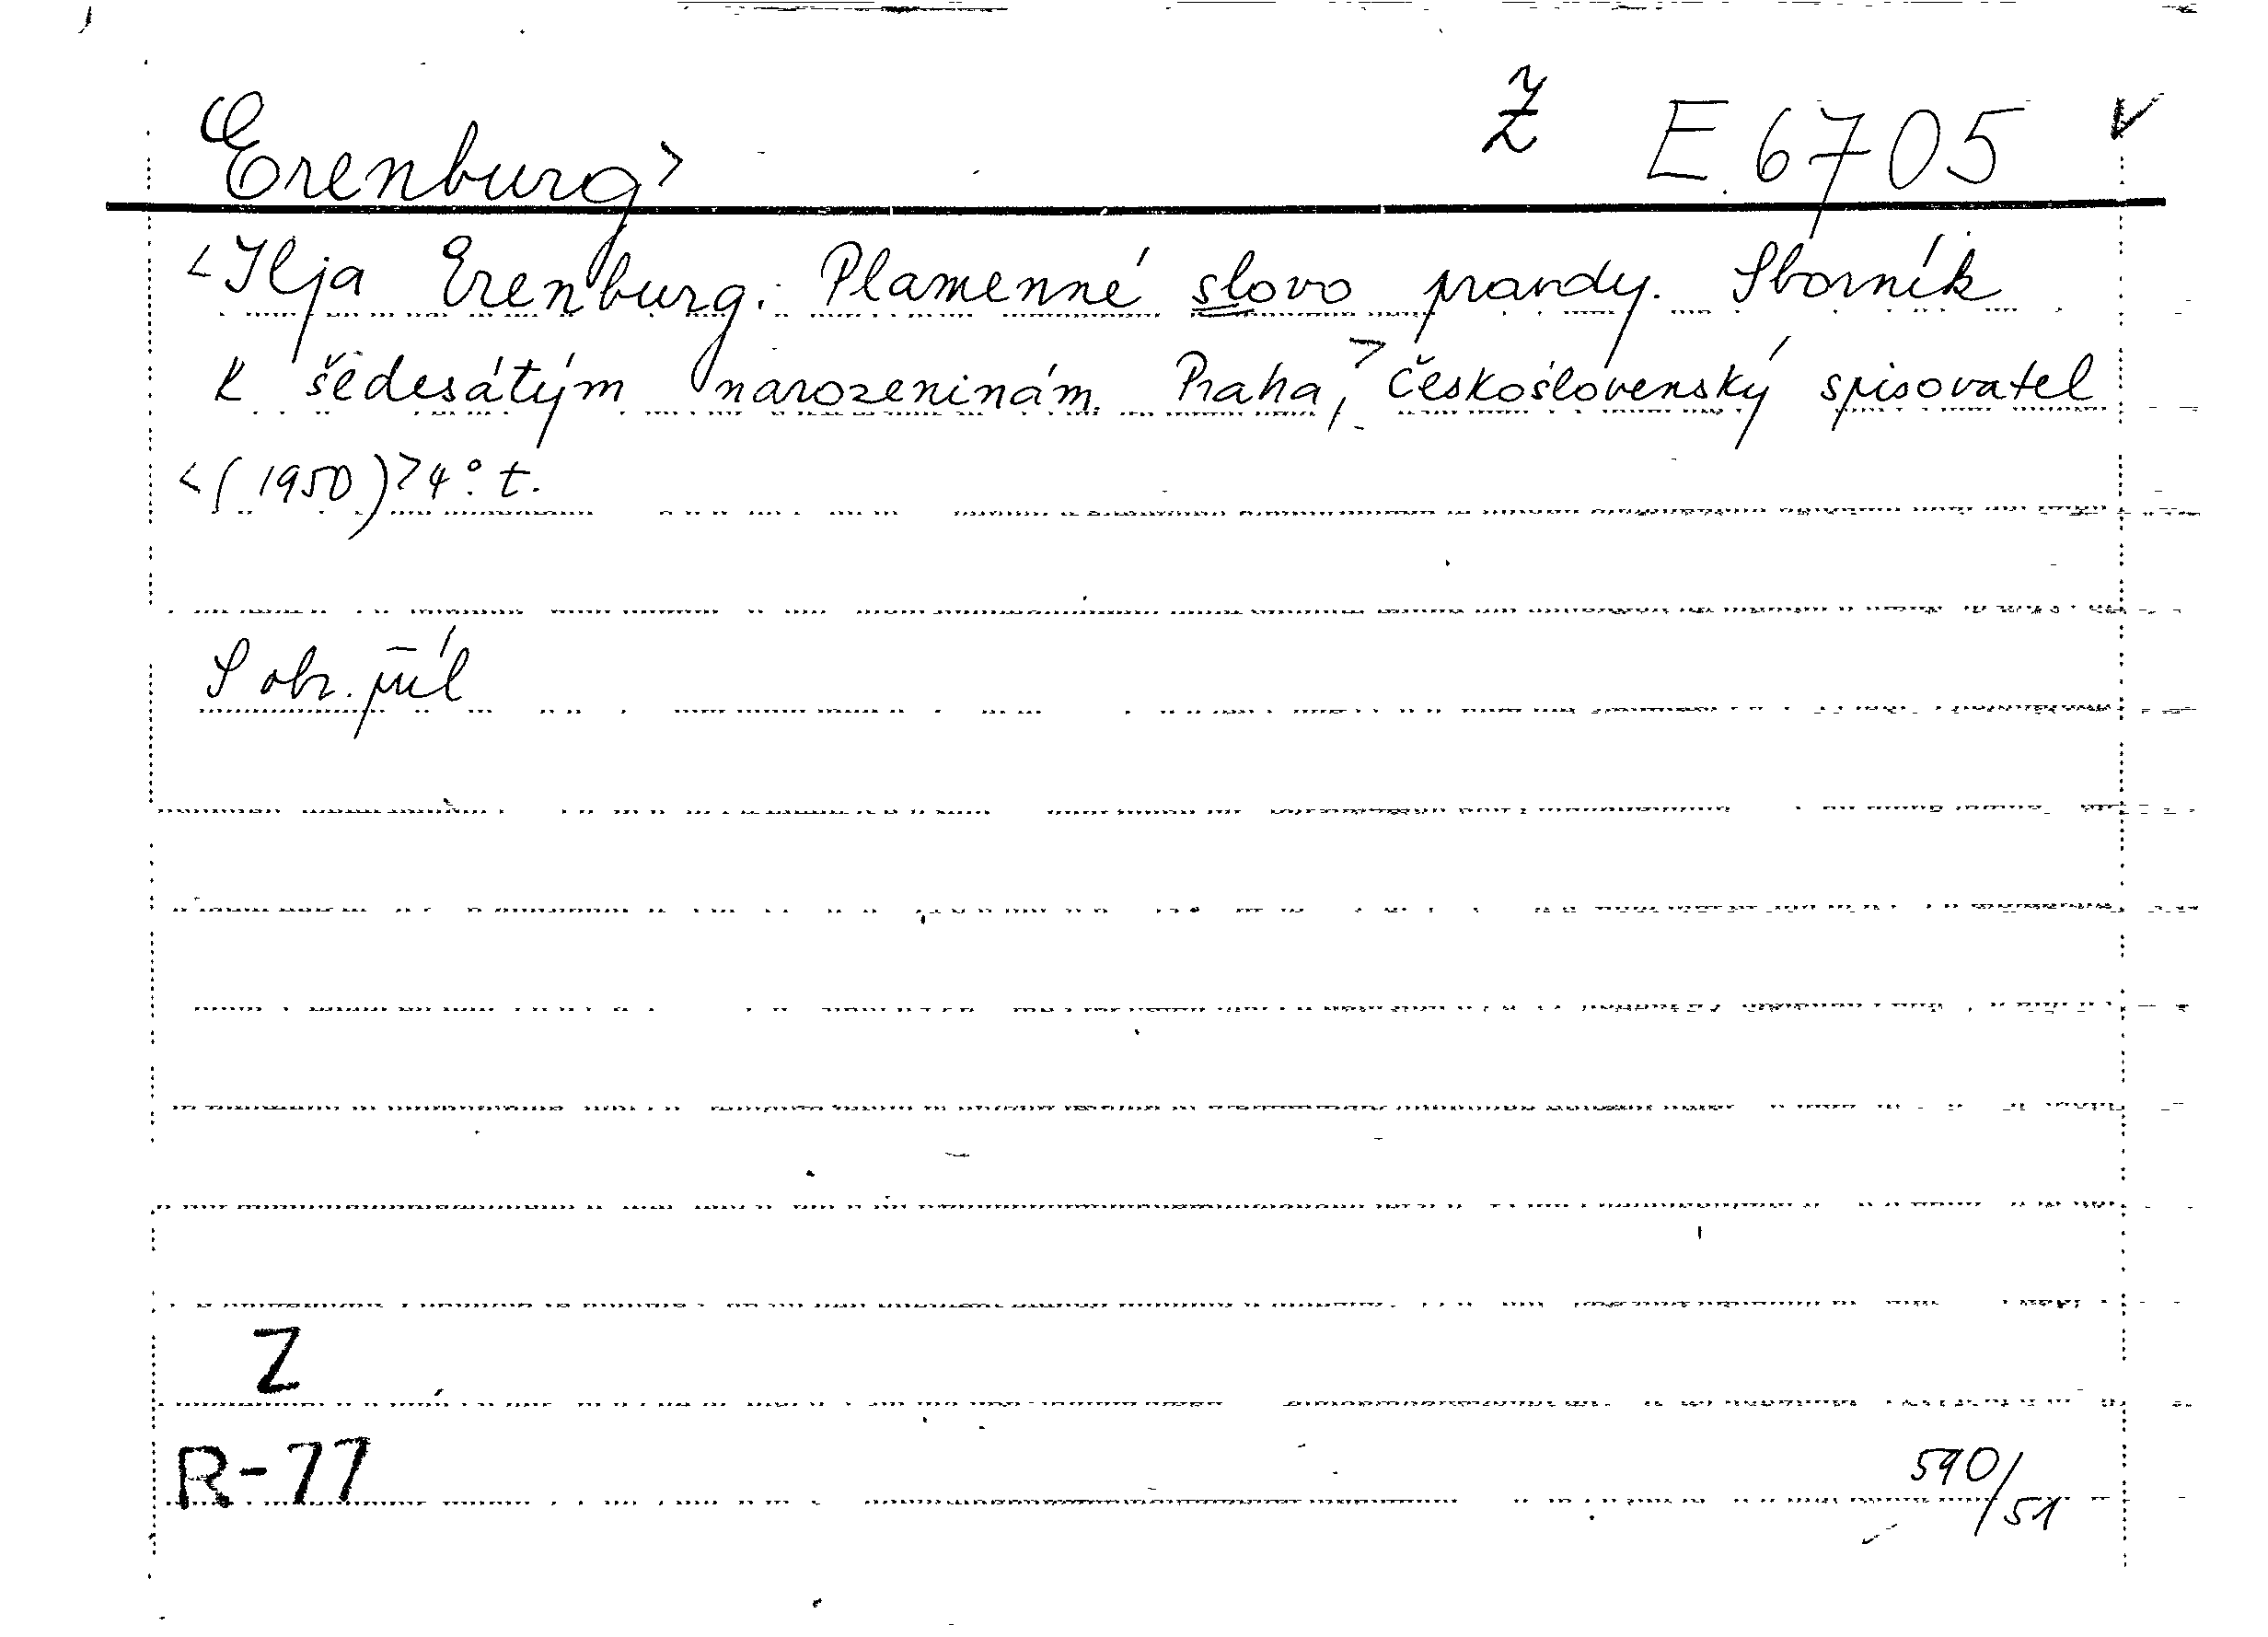 Erenburg> Ž E 6705 v
<Ilja Erenburg. Plamenné slovo pravdy. Sborník
k šedesátým narozeninám. Praha,> Československý spisovatel
<(1950)> 4° t.
S obr. příl
Z
R-77
590/51